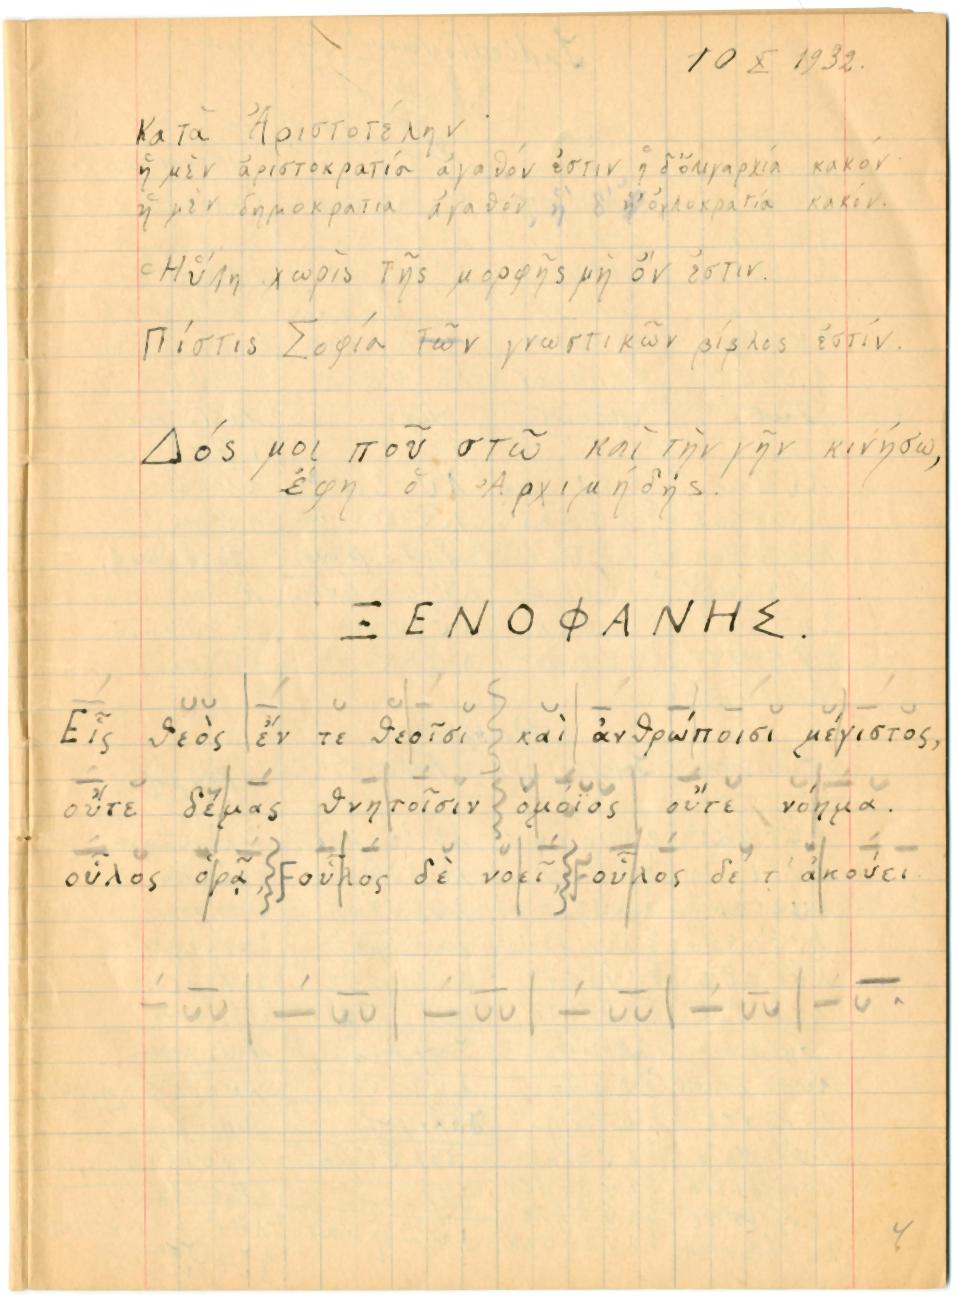 10 X 1932.
Κατὰ Ἀριστοτέλην
ἡ μὲν ἀριστοκρατία ἀγαθόν ἐστιν ἡ δ'ὀλιγαρχία κακόν
ἡ μὲν δημοκρατια ἀγαθόν, ἡ δ' ὀχλοκρατία κακόν.
Ἡ ὕλη χωρὶς τῆς μορφῆς μὴ ὄν ἐστιν.
Πίστις Σοφία τῶν γνωστικῶν βίβλος ἐστίν.
Δός μοι ποῦ στῶ καὶ τὴν γῆν κινήσω,
ἔφη ὁ Ἀρχιμήδής.
ΞΕΝΟΦΑΝΗΣ.
Εἷς θεὸς ἔν τε θεοῖσι καὶ ἀνθρώποισι μέγιστος,
οὔτε δέμας θνητοῖσιν ὁμοίος οὔτε νόημα.
οὖλος ὁρᾷ, οὖλος δὲ νοεῖ οὖλος δέ τ' ἀκούει
4